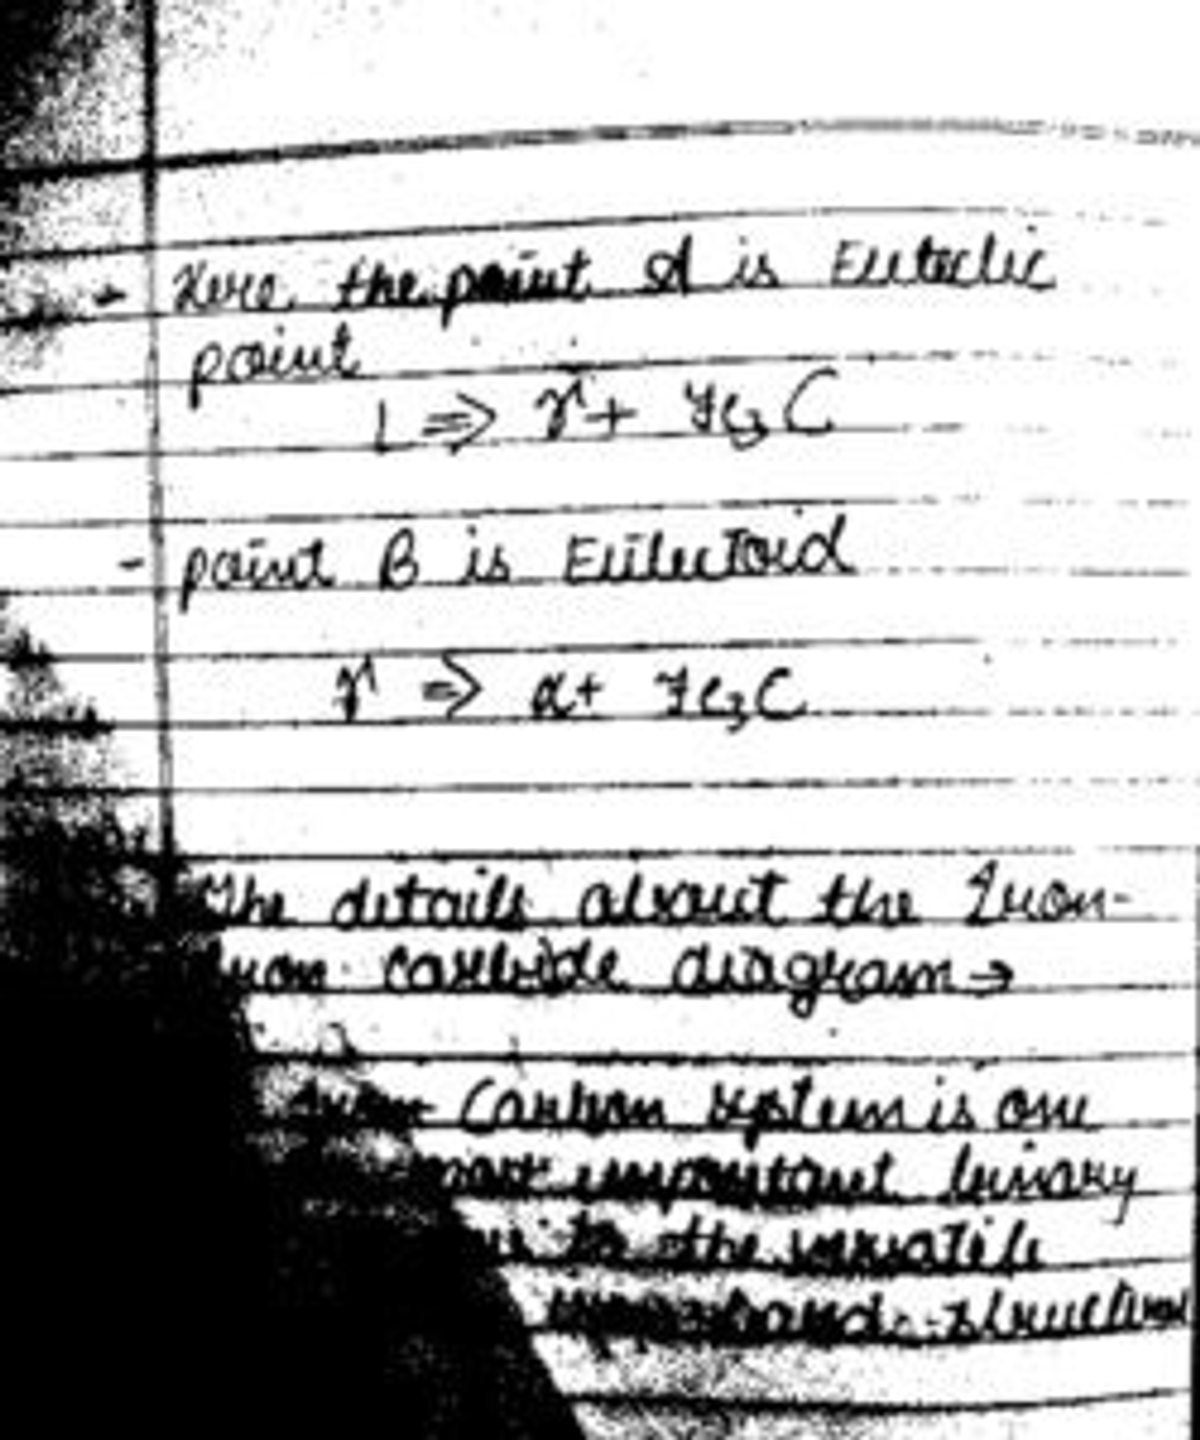 - Here the point A is Eutectic
point
L ⇒ γ + Fe₃C
- point B is Eutectoid
γ ⇒ α + Fe₃C
The details about the Iron-
iron carbide diagram →
Carbon system is one
most important binary
to the versatile
structural